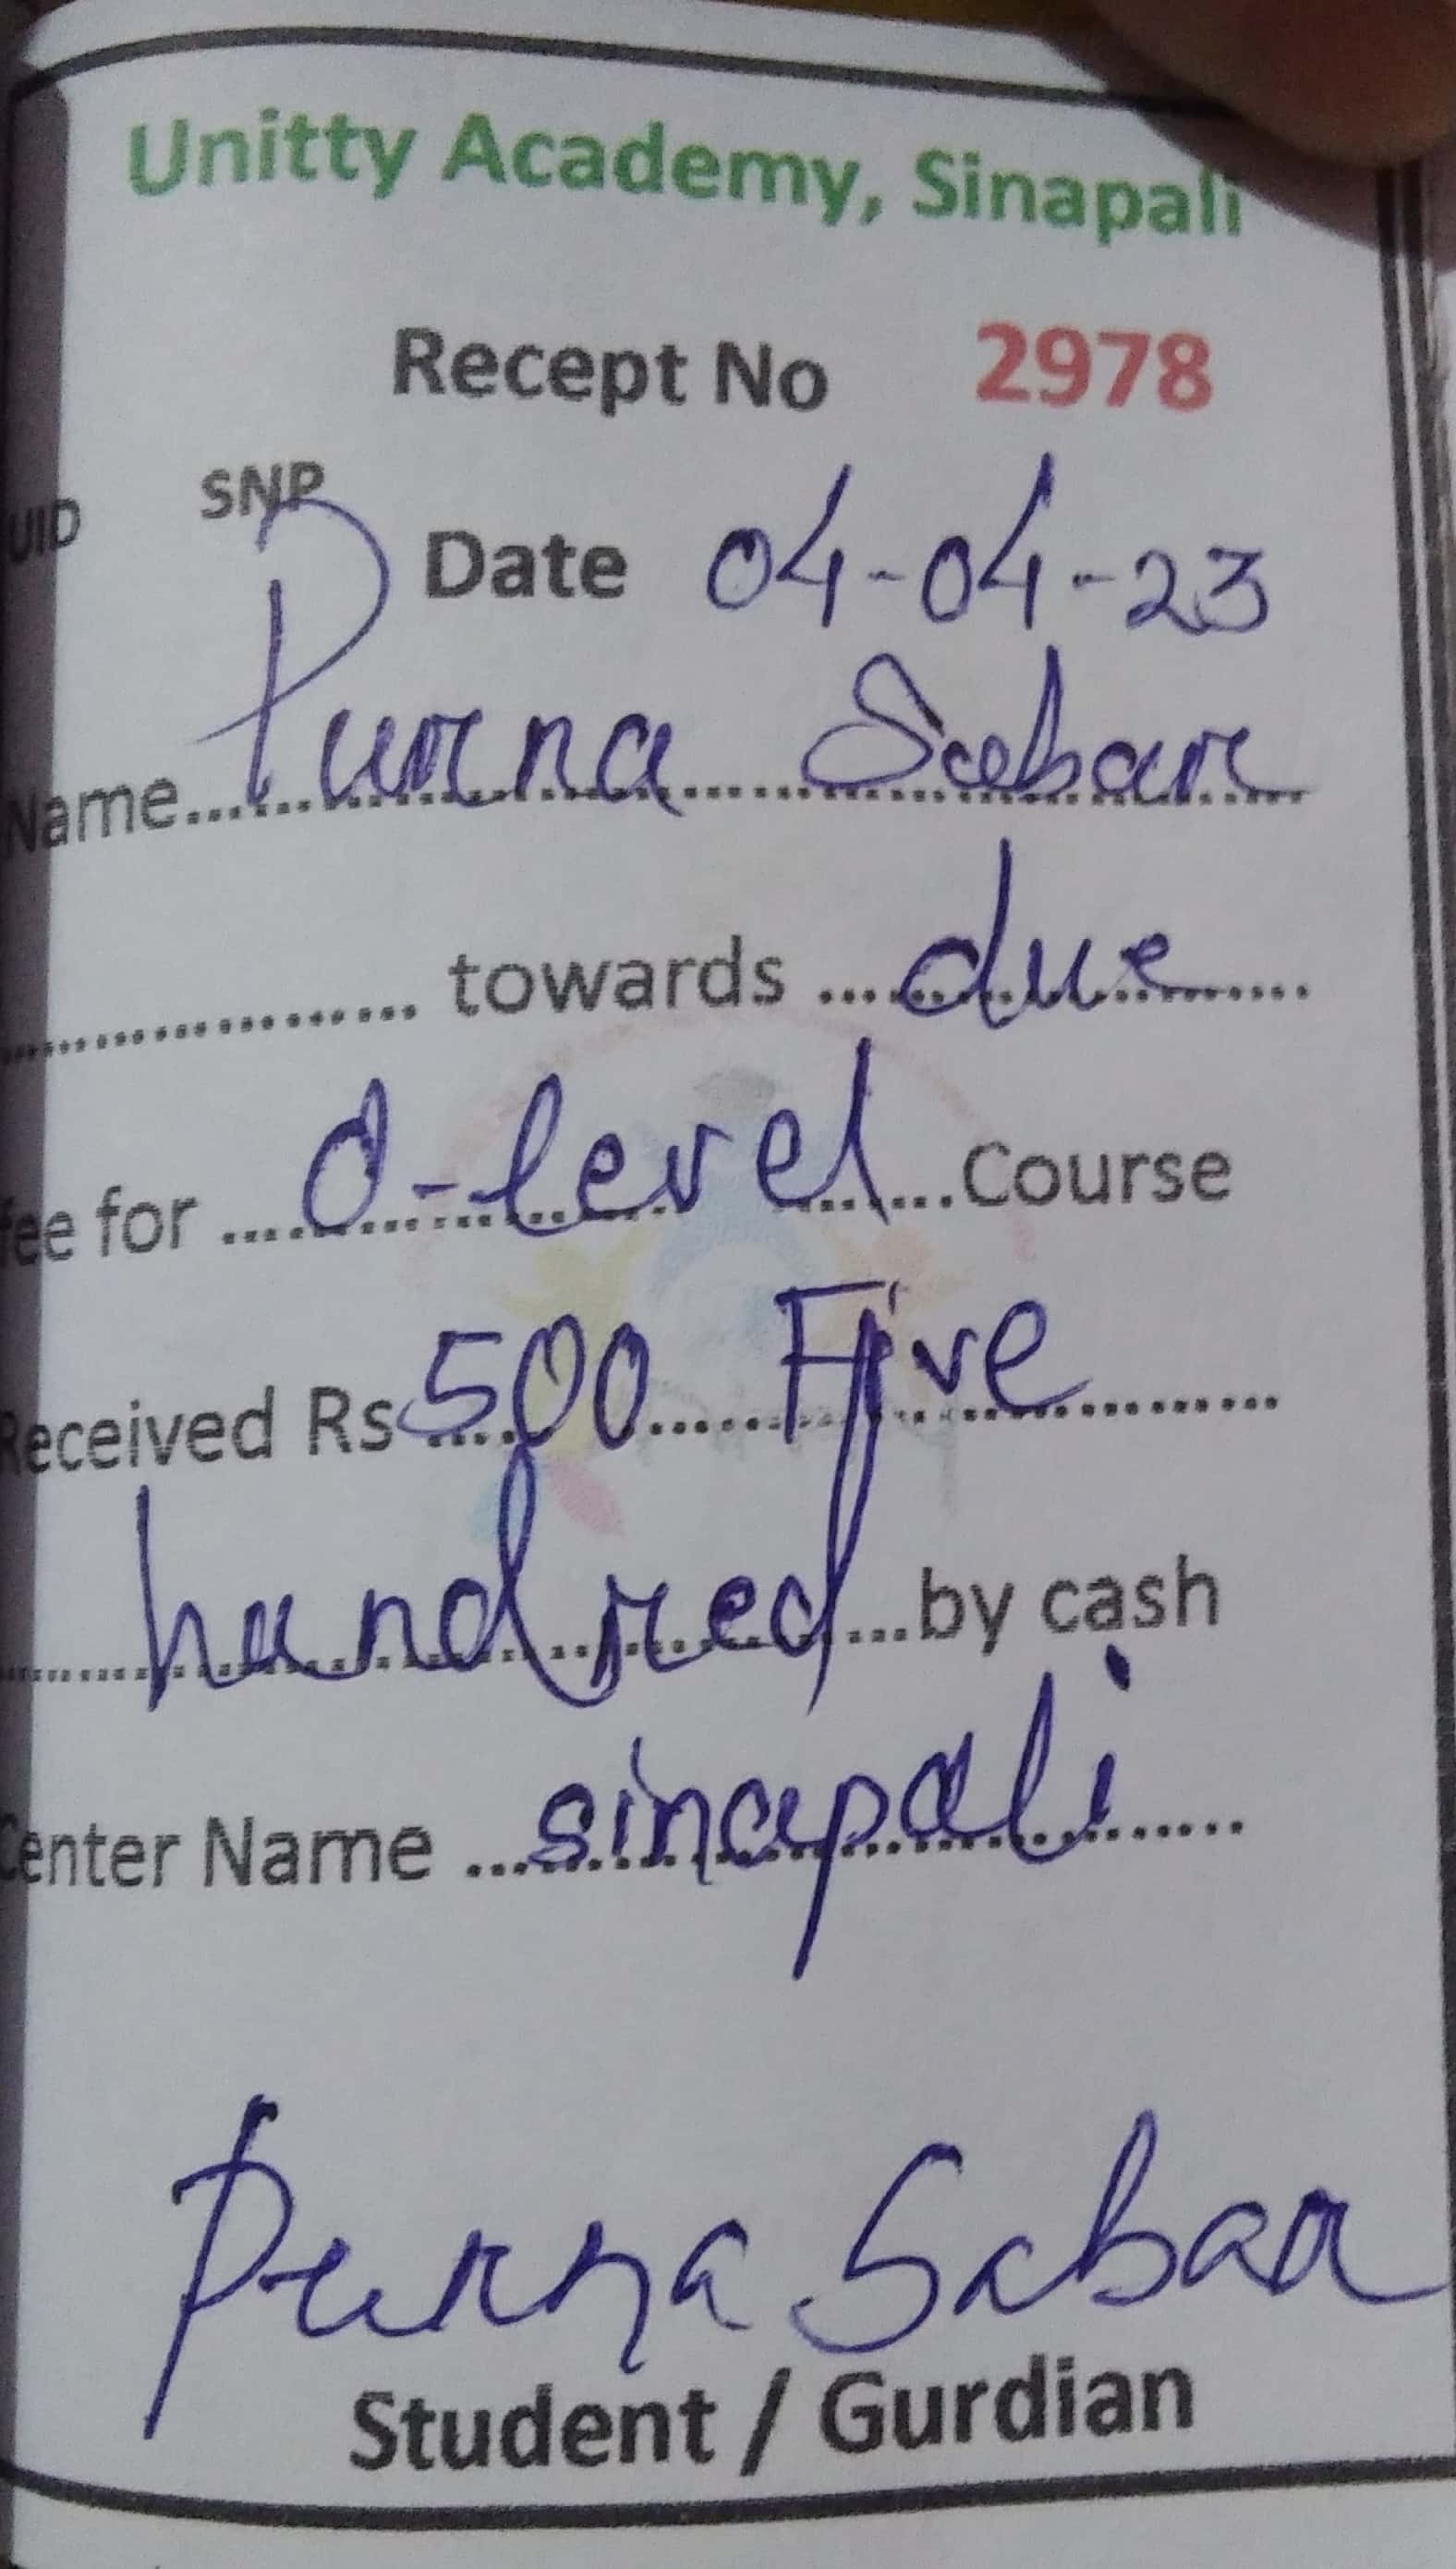 Unitty Academy, Sinapali
Recept No 2978
UID SNP
Date 04-04-23
Name....Purna Sabar
.................... towards ....due....
fee for ....O-level....Course
Received Rs....500....Five....
....hundred....by cash
Center Name ....sinapali....
Purna Sabar
Student / Gurdian